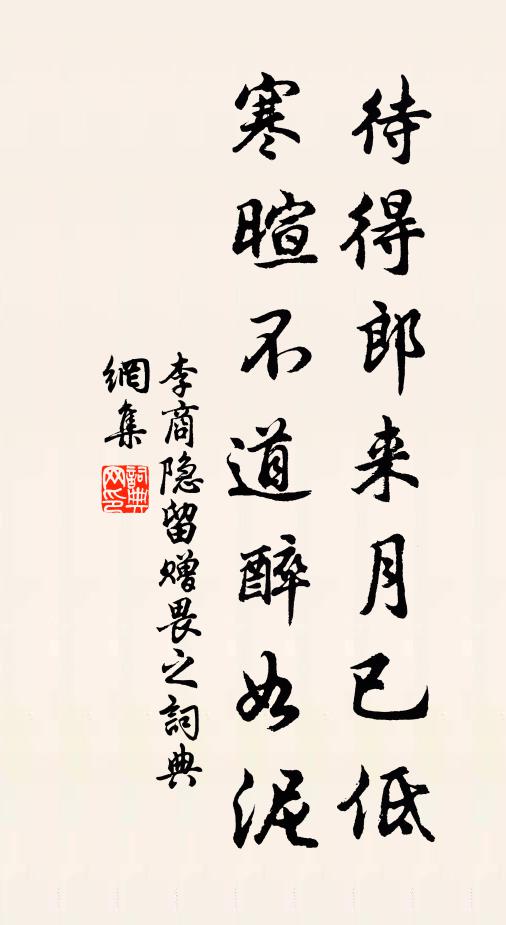 待得郎来月已低
寒暄不道醉如泥
李商隐留赠畏之詞典
網集
詞典
网印